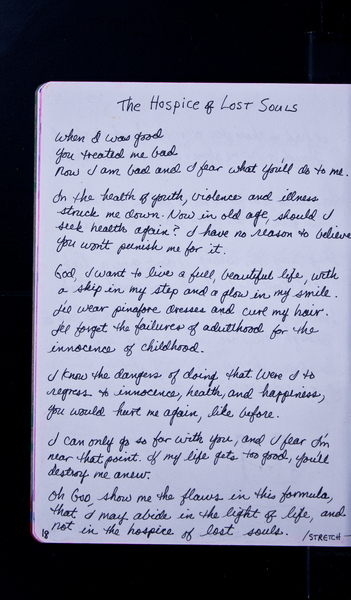 The Hospice of Lost Souls
When I was good
You treated me bad
Now I am bad and I fear what you'll do to me.
In the health of youth, violence and illness
struck me down. Now in old age, should I
seek health again? I have no reason to believe
you won't punish me for it.
God, I want to live a full, beautiful life, with
a skip in my step and a glow in my smile.
I'll wear pinafore dresses and curl my hair.
I'll forget the failures of adulthood for the
innocence of childhood.
I know the dangers of doing that. Were I to
regress to innocence, health, and happiness,
you would hurt me again, like before.
I can only go so far with you, and I fear I'm
near that point. If my life gets too good, you'll
destroy me anew.
Oh God, show me the flaws in this formula,
that I may abide in the light of life, and
not in the hospice of lost souls.
/STRETCH
18